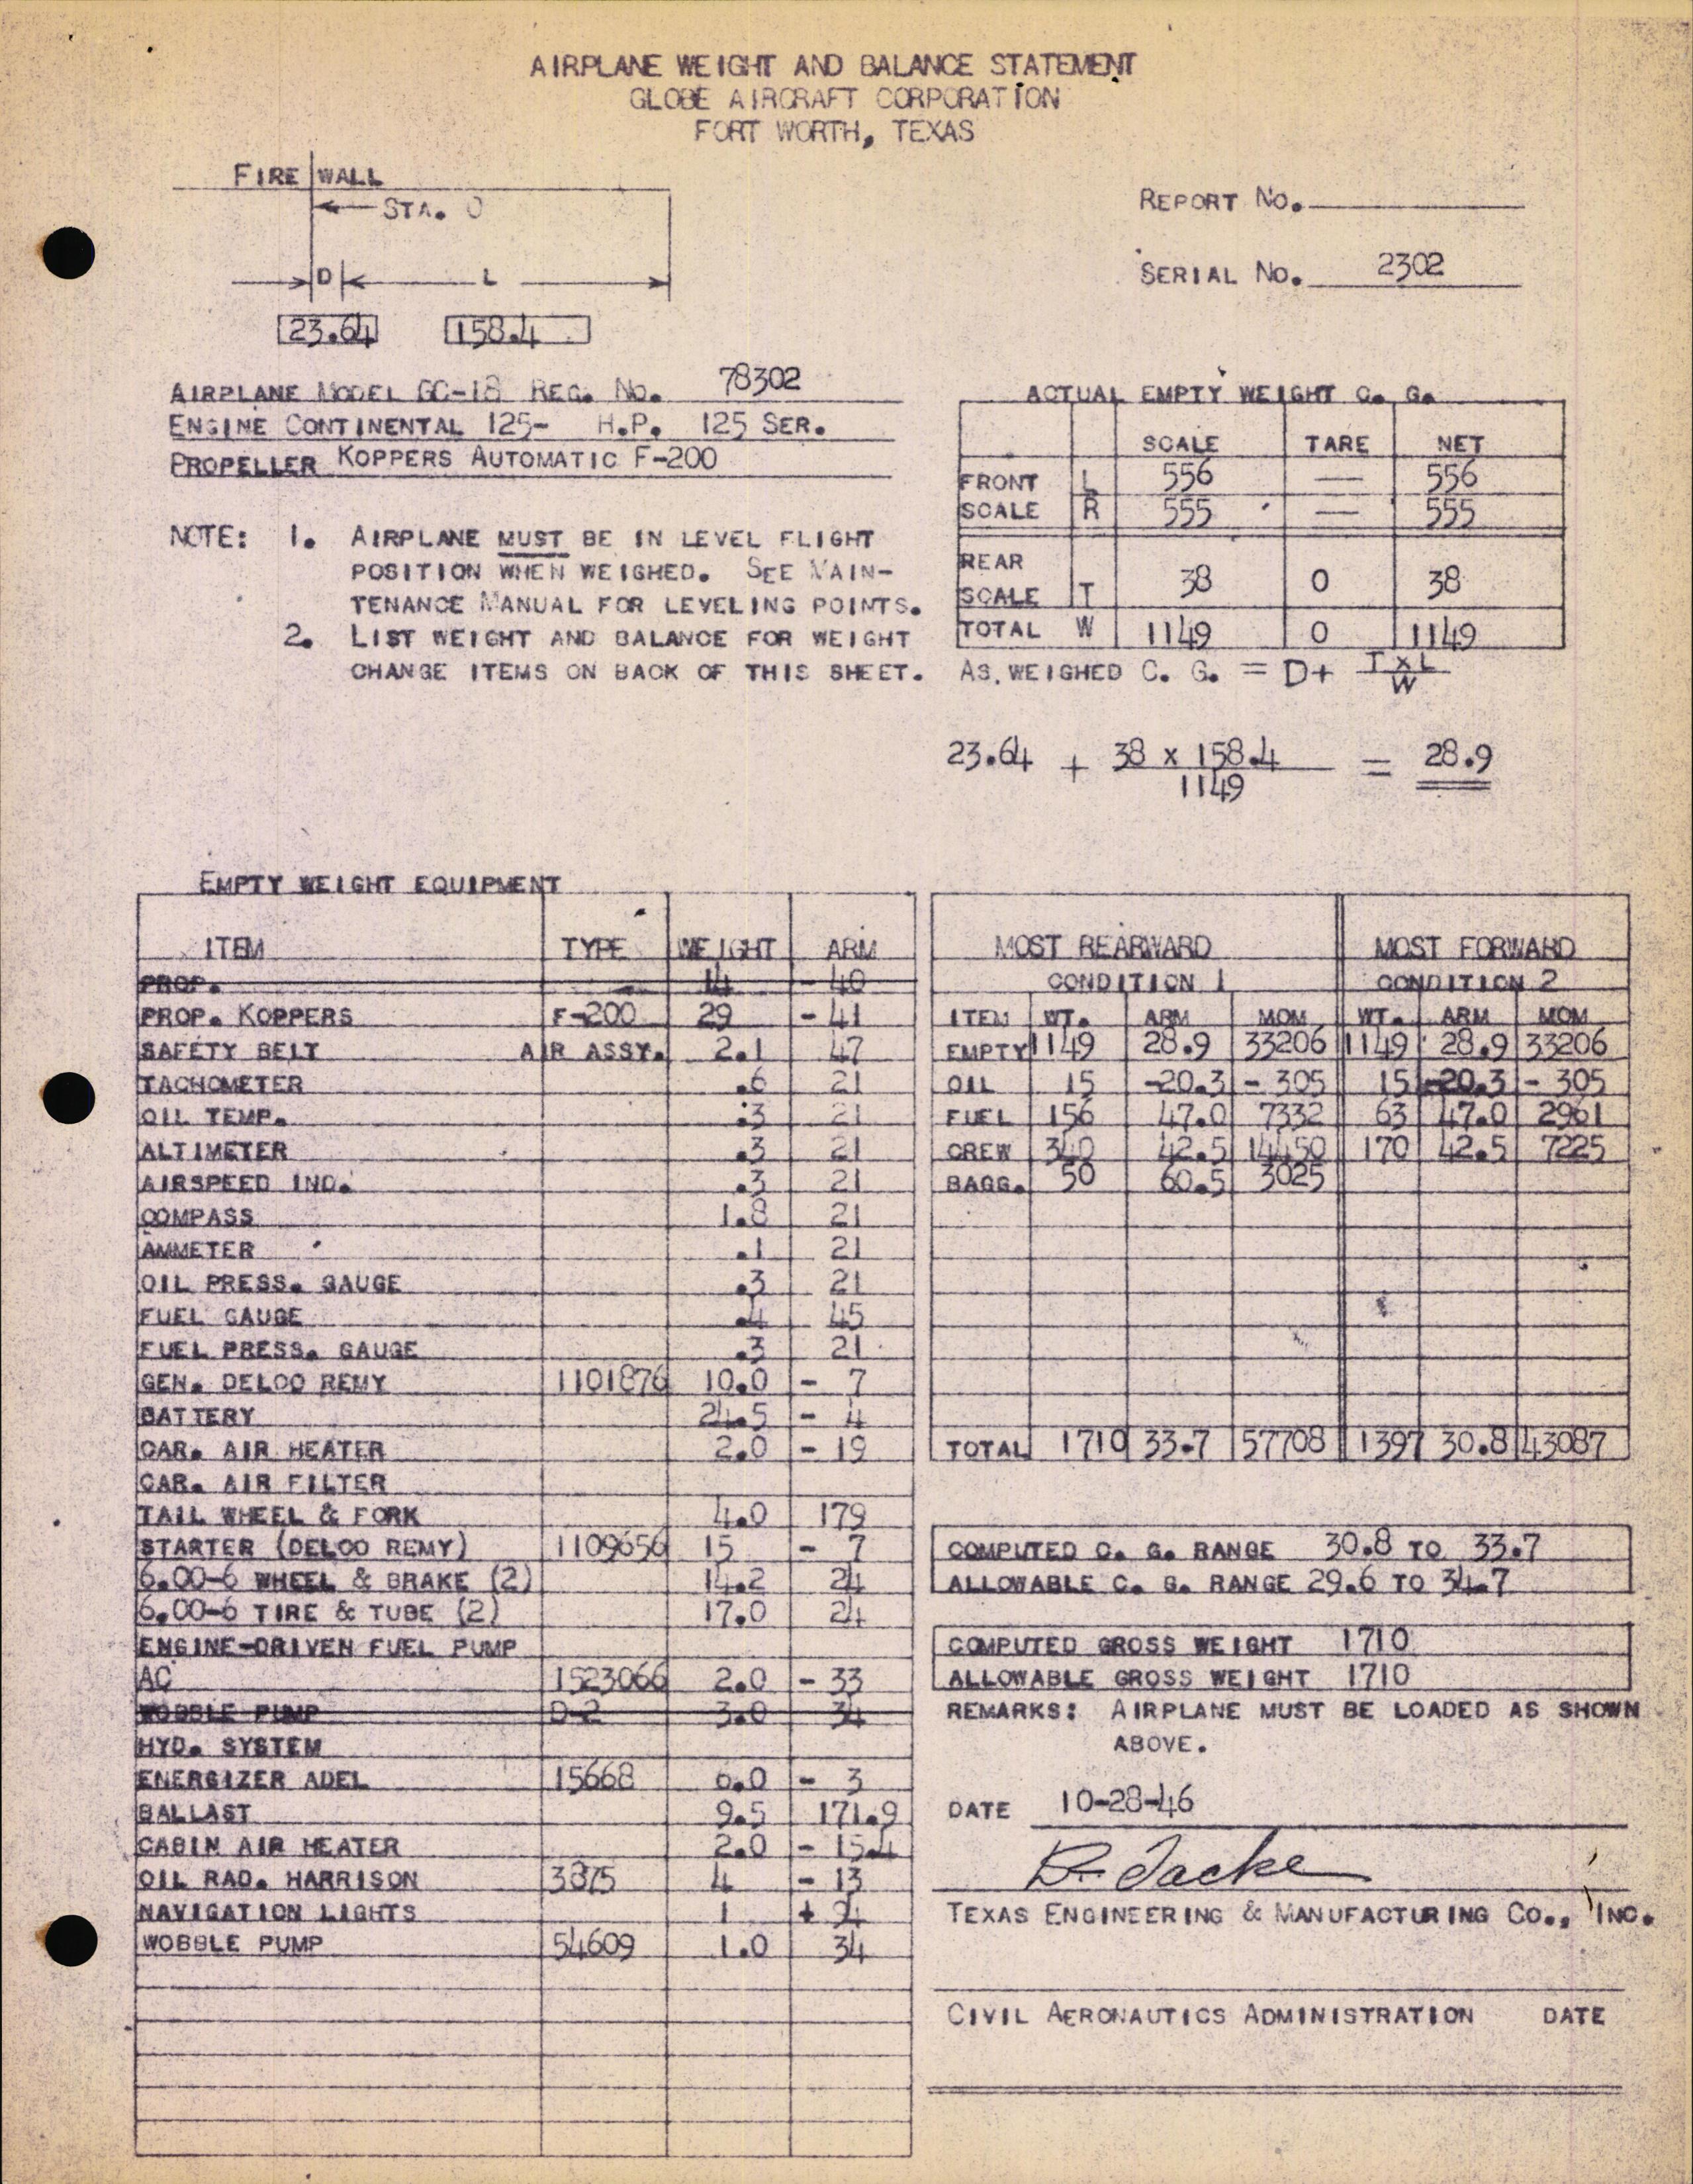 AIRPLANE WEIGHT AND BALANCE STATEMENT
GLOBE AIRCRAFT CORPORATION
FORT WORTH, TEXAS
FIRE WALL
STA. 0
D L
23.64 158.4
REPORT NO.
SERIAL NO. 2302
AIRPLANE MODEL GC-1B REG. NO. 78302
ENGINE CONTINENTAL 125- H.P. 125 SER.
PROPELLER KOPPERS AUTOMATIC F-200
NOTE: 1. AIRPLANE MUST BE IN LEVEL FLIGHT
POSITION WHEN WEIGHED. SEE MAIN-
TENANCE MANUAL FOR LEVELING POINTS.
2. LIST WEIGHT AND BALANCE FOR WEIGHT
CHANGE ITEMS ON BACK OF THIS SHEET.
ACTUAL EMPTY WEIGHT C. G.
SCALE TARE NET
FRONT L 556 — 556
SCALE R 555 — 555
REAR
SCALE T 38 0 38
TOTAL W 1149 0 1149
AS WEIGHED C. G. = D+ T x L
W
23.64 + 38 x 158.4 = 28.9
1149
EMPTY WEIGHT EQUIPMENT
ITEM TYPE WEIGHT ARM
PROP. 14 - 40
PROP. KOPPERS F-200 29 - 41
SAFETY BELT AIR ASSY. 2.1 47
TACHOMETER .6 21
OIL TEMP. .3 21
ALTIMETER .3 21
AIRSPEED IND. .3 21
COMPASS 1.8 21
AMMETER .1 21
OIL PRESS. GAUGE .3 21
FUEL GAUGE .4 45
FUEL PRESS. GAUGE .3 21
GEN. DELCO REMY 1101876 10.0 - 7
BATTERY 24.5 - 4
CAR. AIR HEATER 2.0 - 19
CAR. AIR FILTER
TAIL WHEEL & FORK 4.0 179
STARTER (DELCO REMY) 1109656 15 - 7
6.00-6 WHEEL & BRAKE (2) 14.2 24
6.00-6 TIRE & TUBE (2) 17.0 24
ENGINE-DRIVEN FUEL PUMP
AC 1523066 2.0 - 33
WOBBLE PUMP D-2 3.0 34
HYD. SYSTEM
ENERGIZER ADEL 15668 6.0 - 3
BALLAST 9.5 171.9
CABIN AIR HEATER 2.0 - 15.4
OIL RAD. HARRISON 3875 4 - 13
NAVIGATION LIGHTS 1 + 94
WOBBLE PUMP 54609 1.0 34
MOST REARWARD MOST FORWARD
CONDITION 1 CONDITION 2
ITEM WT. ARM MOM WT. ARM MOM
EMPTY 1149 28.9 33206 1149 28.9 33206
OIL 15 -20.3 - 305 15 -20.3 - 305
FUEL 156 47.0 7332 63 47.0 2961
CREW 340 42.5 14450 170 42.5 7225
BAGG. 50 60.5 3025
TOTAL 1710 33.7 57708 1397 30.8 43087
COMPUTED C. G. RANGE 30.8 TO 33.7
ALLOWABLE C. G. RANGE 29.6 TO 34.7
COMPUTED GROSS WEIGHT 1710
ALLOWABLE GROSS WEIGHT 1710
REMARKS: AIRPLANE MUST BE LOADED AS SHOWN
ABOVE.
DATE 10-28-46
TEXAS ENGINEERING & MANUFACTURING CO., INC.
CIVIL AERONAUTICS ADMINISTRATION DATE